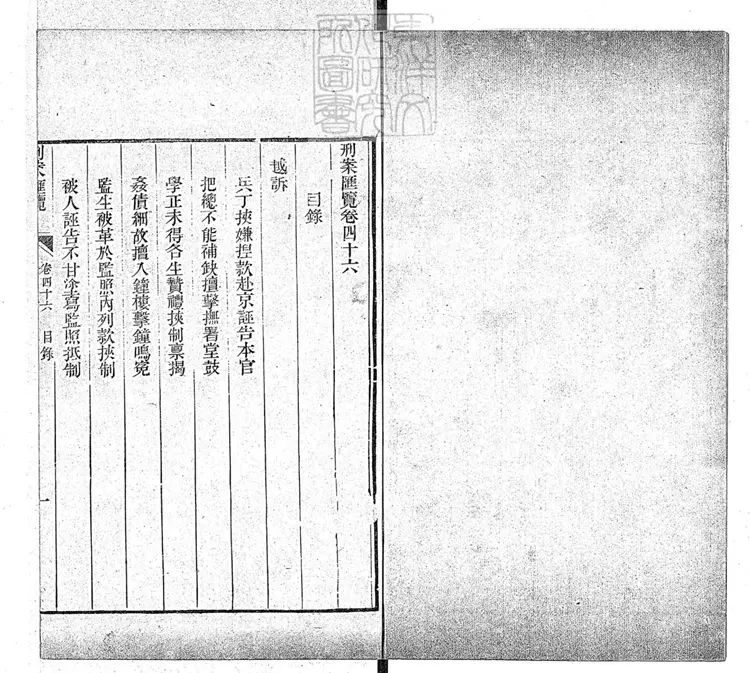 刑案匯覽卷四十六
目錄
越訴
兵丁挾嫌揑款赴京誣告本官
把總不能補缺擅擊撫署堂鼓
學正未得各生贄禮挾制稟揭
姦債細故擅入鐘樓擊鐘鳴冤
監生被革於監照內列款挾制
被人誣告不甘塗寫監照抵制
刑案匯覽 卷四十六 目錄 一
東洋文化研究所圖書